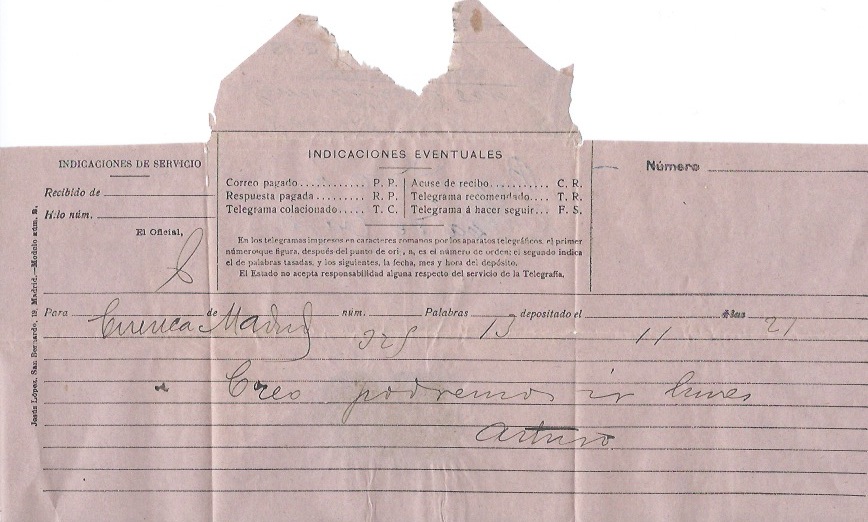 INDICACIONES DE SERVICIO
Recibido de
Hilo núm.
El Oficial,
INDICACIONES EVENTUALES
Correo pagado............ P. P.
Respuesta pagada......... R. P.
Telegrama colacionado..... T. C.
Acuse de recibo........... C. R.
Telegrama recomendado.... T. R.
Telegrama á hacer seguir... F. S.
En los telegramas impresos en caracteres romanos por los aparatos telegráficos, el primer
número que figura, después del punto de ori , n, es el número de orden; el segundo indica
el de palabras tasadas, y los siguientes, la fecha, mes y hora del depósito.
El Estado no acepta responsabilidad alguna respecto del servicio de la Telegrafía.
Número
Para Cuenca de Madrid núm. 325 Palabras 13 depositado el 11 á las 21
Creo podremos ir lunes
Arturo
Jesús López. San Bernardo, 19, Madrid.—Modelo núm. 2.